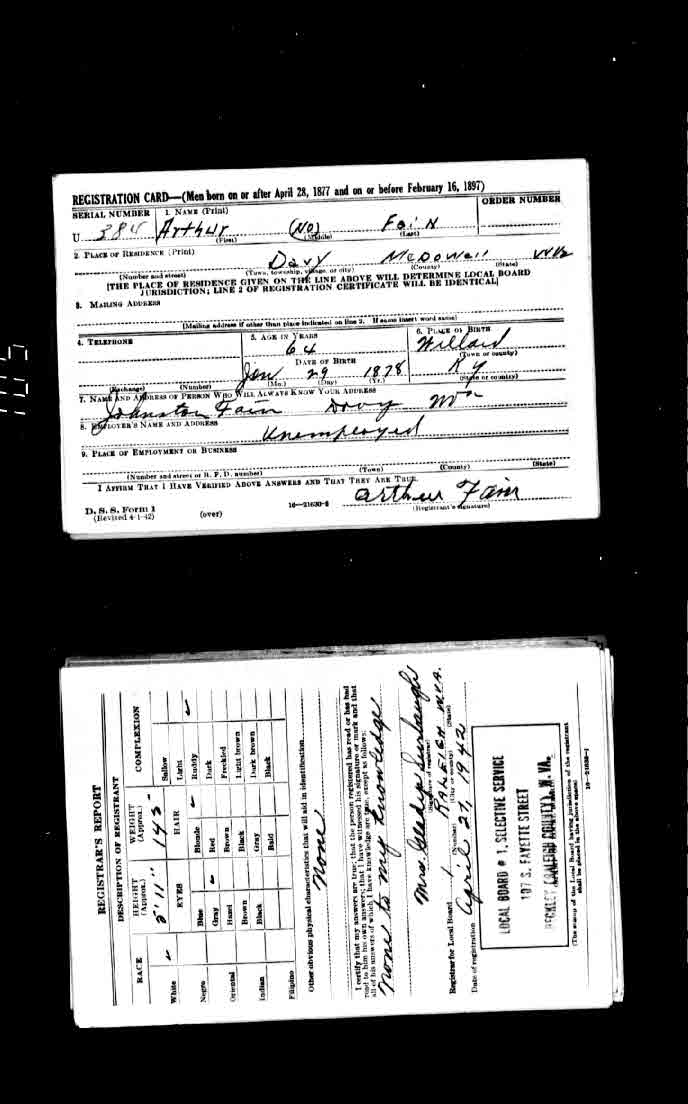 REGISTRATION CARD—(Men born on or after April 28, 1877 and on or before February 16, 1897)
SERIAL NUMBER 1. NAME (Print) ORDER NUMBER
U 384 Arthur (NO) Fain
(First) (Middle) (Last)
2. PLACE OF RESIDENCE (Print)
Davy McDowell W Va
(Number and street) (Town, township, village, or city) (County) (State)
[THE PLACE OF RESIDENCE GIVEN ON THE LINE ABOVE WILL DETERMINE LOCAL BOARD
JURISDICTION; LINE 2 OF REGISTRATION CERTIFICATE WILL BE IDENTICAL]
3. MAILING ADDRESS
[Mailing address if other than place indicated on line 2. If same insert word same]
4. TELEPHONE 5. AGE IN YEARS 6. PLACE OF BIRTH
64 Willard
DATE OF BIRTH (Town or county)
Jan 29 1878 Ky
(Exchange) (Number) (Mo.) (Day) (Yr.) (State or country)
7. NAME AND ADDRESS OF PERSON WHO WILL ALWAYS KNOW YOUR ADDRESS
Johnston Fain Davy
8. EMPLOYER'S NAME AND ADDRESS
Unemployed
9. PLACE OF EMPLOYMENT OR BUSINESS
(Number and street or R. F. D. number) (Town) (County) (State)
I AFFIRM THAT I HAVE VERIFIED ABOVE ANSWERS AND THAT THEY ARE TRUE.
Arthur Fain
D. S. S. Form 1 (Registrant's signature)
(Revised 4-1-42) (over) 16—21630-2
REGISTRAR'S REPORT
DESCRIPTION OF REGISTRANT
RACE HEIGHT (Approx.) WEIGHT (Approx.) COMPLEXION
5' 11" 143
White EYES HAIR Sallow
Light
Negro Blue Blonde Ruddy
Gray Red Dark
Oriental Hazel Brown Freckled
Brown Black Light brown
Indian Black Gray Dark brown
Bald Black
Filipino
Other obvious physical characteristics that will aid in identification
None
I certify that my answers are true; that the person registered has read or has had
read to him his own answers; that I have witnessed his signature or mark and that
all of his answers of which I have knowledge are true, except as follows:
None to my knowledge
Mrs. Gladys
(Signature of registrar)
Registrar for Local Board 1 RALEIGH W.VA.
(Number) (City or county) (State)
Date of registration April 27, 1942
LOCAL BOARD # 1, SELECTIVE SERVICE
107 S. FAYETTE STREET
BECKLEY (RALEIGH COUNTY), W. VA.
(The stamp of the Local Board having jurisdiction of the registrant
shall be placed in the above space)
16—21630-1